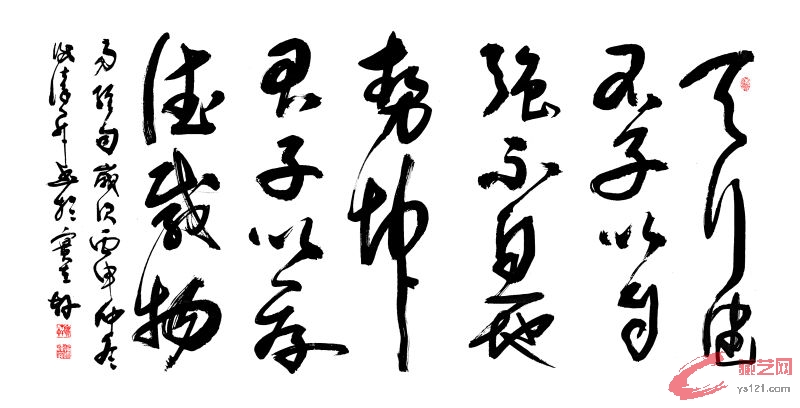 天行健
君子以自
强不息地
勢坤
君子以厚
德載物
易經句歲次丙申仲冬
藏艺网
ys121.com